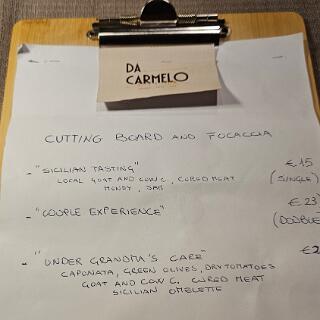 DA
CARMELO
CUTTING BOARD AND FOCACCIA
- "SICILIAN TASTING" €15
LOCAL GOAT AND COW C., CURED MEAT (SINGLE)
HONEY, JAM
- "COUPLE EXPERIENCE" €23
(DOUBLE
- "UNDER GRANDMA'S CARE" €2
CAPONATA, GREEN OLIVES, DRY TOMATOES
GOAT AND COW C. CURED MEAT
SICILIAN OMELETTE